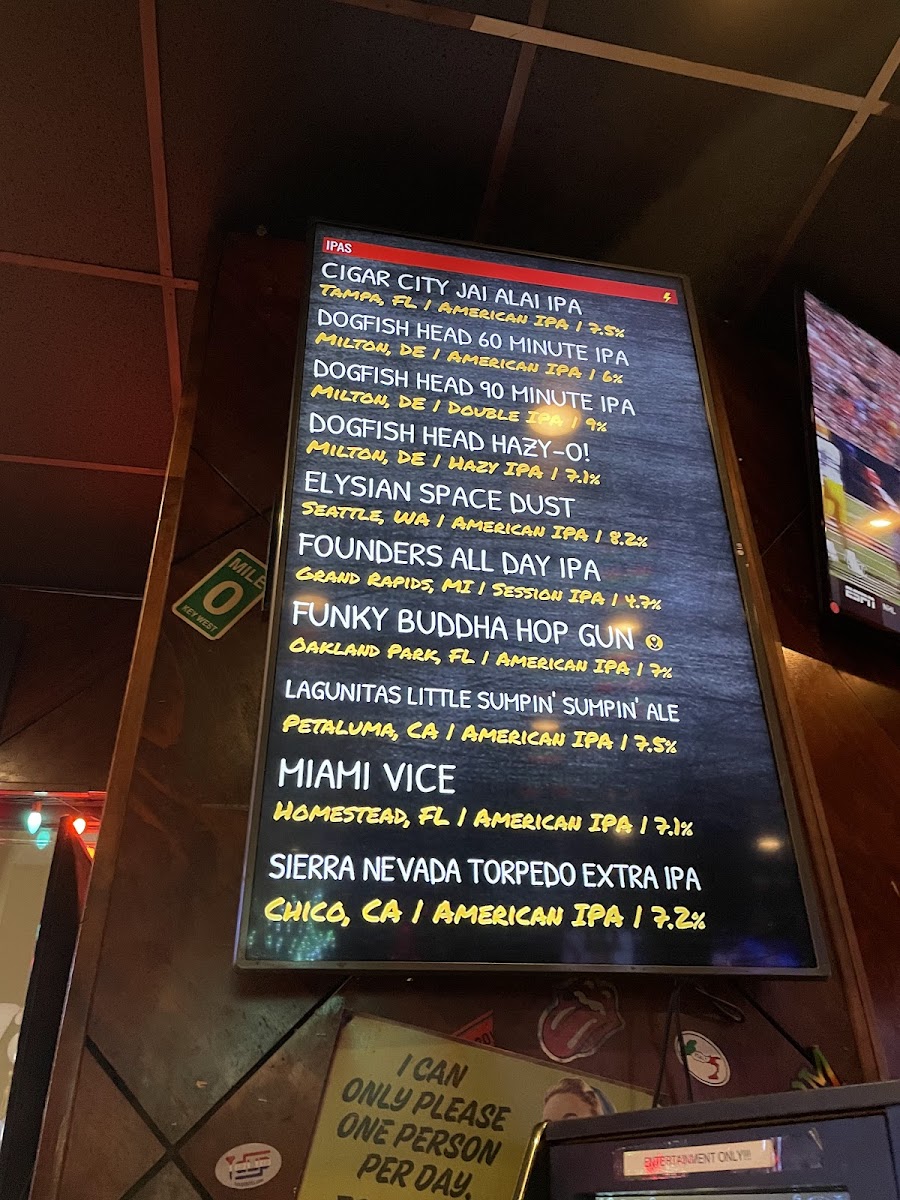 IPAS
CIGAR CITY JAI ALAI IPA
TAMPA, FL | AMERICAN IPA | 7.5%
DOGFISH HEAD 60 MINUTE IPA
MILTON, DE | AMERICAN IPA | 6%
DOGFISH HEAD 90 MINUTE IPA
MILTON, DE | DOUBLE IPA | 9%
DOGFISH HEAD HAZY-O!
MILTON, DE | HAZY IPA | 7.1%
ELYSIAN SPACE DUST
SEATTLE, WA | AMERICAN IPA | 8.2%
FOUNDERS ALL DAY IPA
GRAND RAPIDS, MI | SESSION IPA | 4.7%
FUNKY BUDDHA HOP GUN
OAKLAND PARK, FL | AMERICAN IPA | 7%
LAGUNITAS LITTLE SUMPIN' SUMPIN' ALE
PETALUMA, CA | AMERICAN IPA | 7.5%
MIAMI VICE
HOMESTEAD, FL | AMERICAN IPA | 7.1%
SIERRA NEVADA TORPEDO EXTRA IPA
CHICO, CA | AMERICAN IPA | 7.2%
MILE
0
KEY WEST
ESPN NHL
I CAN
ONLY PLEASE
ONE PERSON
PER DAY.
ENTERTAINMENT ONLY!!!